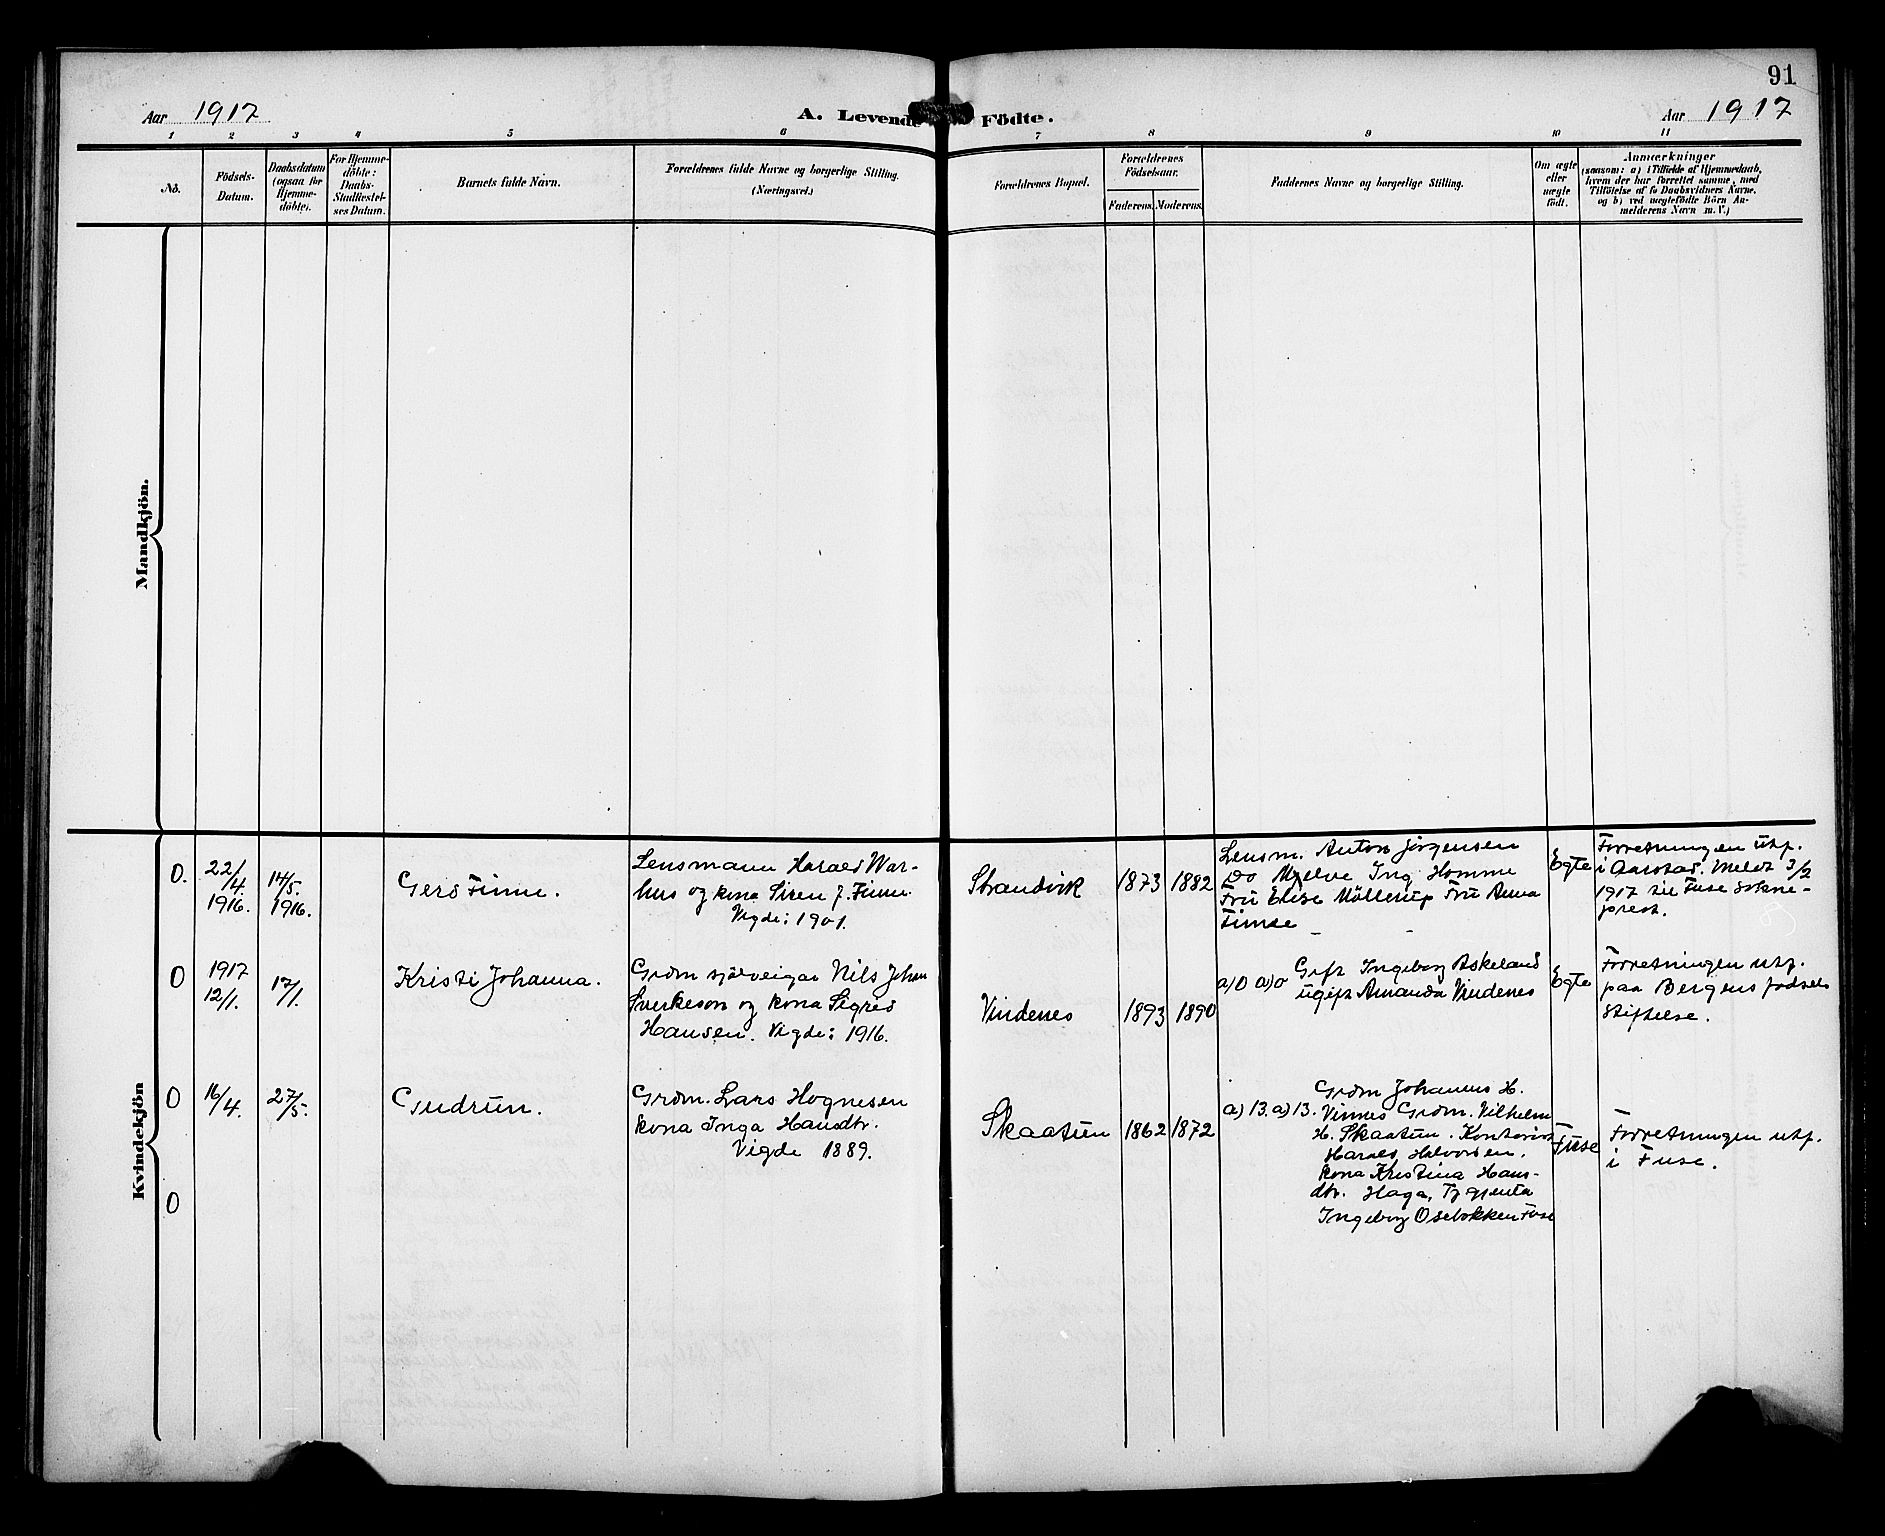 91
Aar 1917
A. Levende Födte.
Aar 1917
1 2 3 4 5 6 7 8 9 10 11
No.
Födsels-
Datum.
Daabsdatum
(ogsaa for
Hjemme-
döbte).
For Hjemme-
döbte:
Daabs-
Stadfæstel-
ses Datum.
Barnets fulde Navn.
Forældrenes fulde Navne og borgerlige Stilling.
(Næringsvei.)
Forældrenes Bopæl.
Forældrenes
Födselsaar.
Faderens. Moderens.
Faddernes Navne og borgerlige Stilling.
Om ægte
eller
uægte
født.
Anmærkninger
(saasom: a) i Tilfælde af Hjemmedaab,
hvem der har forrettet samme, med
Tilföielse af to Daabsvidners Navne.
og b) ved uægtefödte Börn An-
melderens Navn m. V.)
Mandkjön.
Kvindekjön
0.
22/4.
1916.
14/5.
1916.
Gerd Finne.
Lensmann Harald War-
hus og kona Siren f. Finne.
Vigde: 1901.
Strandvik
1873 1882
Lensm. Anton Jörgensen
Do Mjelve Ing Homme
Fru Elise Möllerup Fru Anna
Finne
Egte
Forretningen utf.
i Aarstad. Meldt 3/2
1917 til Fuse sokne-
prest.
0
1917
12/1.
17/1.
Kristi Johanna.
Grdm sjölveigar Nils Johan
Sverkeson og kona Sigrid
Hansen. Vigde: 1916.
Vindenes
1893 1890
a) 0 a) 0
Gift Ingeborg Askeland
ugift Amanda Vindenes
Egte
Forretningen utf.
paa Bergens fødsels
stiftelse.
0
16/4.
27/5.
Gudrun.
Grdm. Lars Hognesen
kona Inga Hansdtr.
Vigde 1889.
Skaatun
1862 1872
a) 13. a) 13.
Grdm Johannes H.
Vinnes Grdm. Vilhelm
H. Skaatun. Kontorist
Harald Halvorsen,
kona Kristina Hans-
dtr. Haga, Tj gjenta
Ingeborg Osebakken Fuse
Fuse
Forretningen utf.
i Fuse.
0